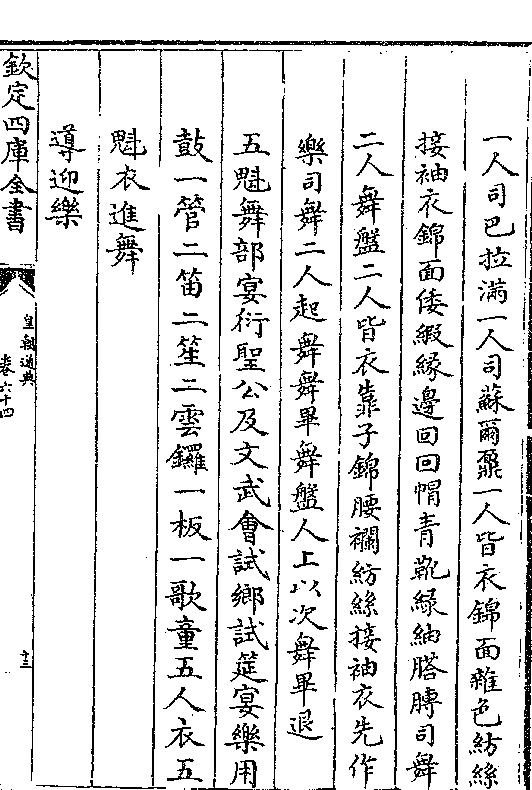 一人司巴拉滿一人司蘇爾奈一人皆衣錦面雜色紡絲
接袖衣錦面倭緞緣邊回回帽青靴綠紬搭膊司舞
二人舞盤二人皆衣靠子錦腰襴紡絲接袖衣先作
樂司舞二人起舞舞畢舞盤人上以次舞畢退
五魁舞部宴衍聖公及文武會試鄉試筵宴樂用
鼓一管二笛二笙二雲鑼一板一歌童五人衣五
魁衣進舞
導迎樂
欽定四庫全書
皇朝通典
卷六十四
十三